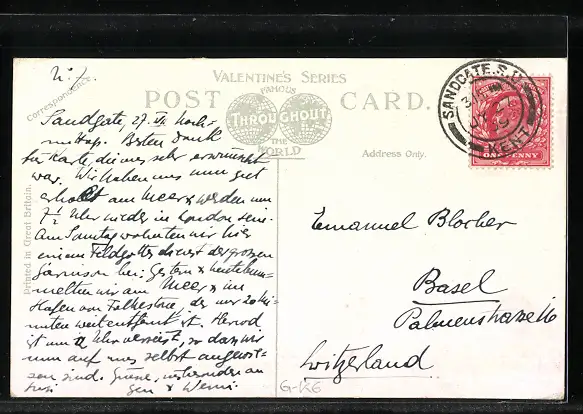 VALENTINE'S SERIES
FAMOUS
THROUGHOUT
THE
WORLD
POST CARD.
Correspondence.
Address Only.
Printed in Great Britain.
SANDGATE.S.O.
KENT
ONE PENNY
Sandgate, 27. VII. Nach-
mittag. Besten Dank
für Karte, die uns sehr erwünscht
war. Wir haben uns nun gut
erholt am Meer & werden um
7½ Uhr wieder in London sein.
Am Sonntag wohnten wir hier
einem Feldgottesdienst der grossen
Garnison bei. Gestern & heute bum-
melten wir am Meer & im
Hafen von Folkestone, der nur 20 Mi-
nuten weit entfernt ist.
ist um Uhr verreist, so dass wir
nun auf uns selbst angewie-
sen sind. Grüsse, insbesondere an
Emanuel Blocher
Basel
Palmenstrasse
Switzerland
G-K6